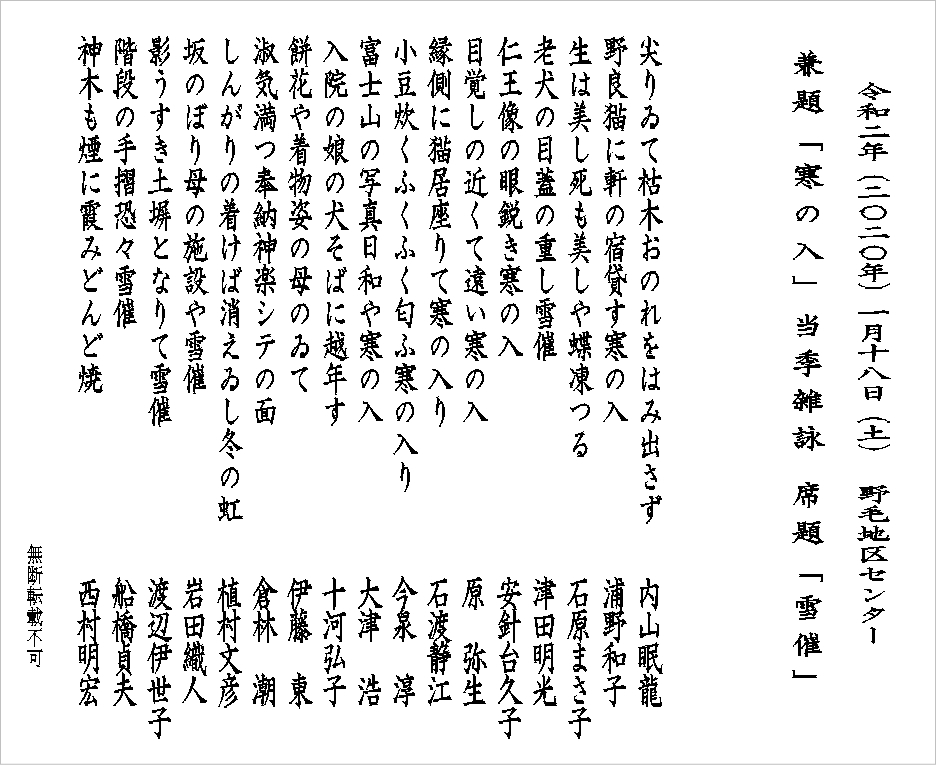 令和二年（二〇二〇年）一月十八日（土）　野毛地区センター
兼題「寒の入」当季雑詠　席題「雪催」
尖りゐて枯木おのれをはみ出さず　内山眠龍
野良猫に軒の宿貸す寒の入　浦野和子
生は美し死も美しや蝶凍つる　石原まさ子
老犬の目蓋の重し雪催　津田明光
仁王像の眼鋭き寒の入　安針台久子
目覚しの近くて遠い寒の入　原　弥生
縁側に猫居座りて寒の入り　石渡静江
小豆炊くふくふく匂ふ寒の入り　今泉　淳
富士山の写真日和や寒の入　大津　浩
入院の娘の犬そばに越年す　十河弘子
餅花や着物姿の母のゐて　伊藤　東
淑気満つ奉納神楽シテの面　倉林　潮
しんがりの着けば消えゐし冬の虹　植村文彦
坂のぼり母の施設や雪催　岩田織人
影うすき土塀となりて雪催　渡辺伊世子
階段の手摺恐々雪催　船橋貞夫
神木も煙に霞みどんど焼　西村明宏
無断転載不可